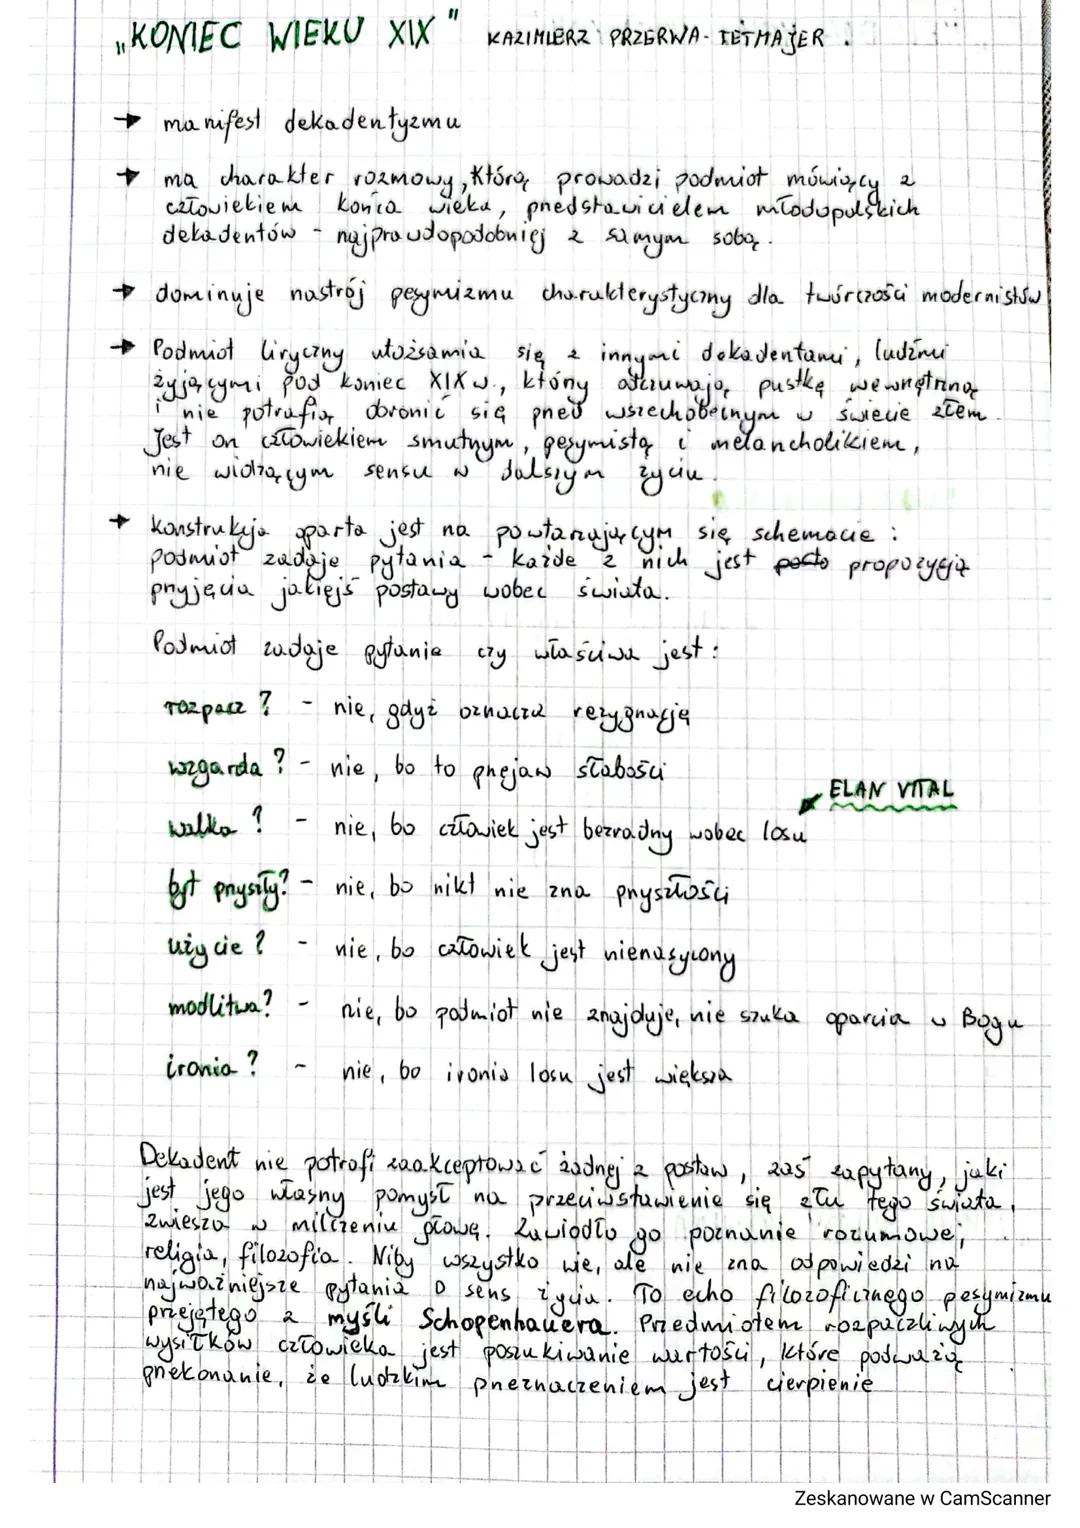 „KONIEC WIEKU XIX" KAZIMIERZ PRZERWA-TETMAJER.
→ manifest dekadentyzmu
→ ma charakter rozmowy, którą prowadzi podmiot mówiący z
człowiekiem końca wieku, przedstawicielem młodopolskich
dekadentów - najprawdopodobniej z samym sobą.
→ dominuje nastrój pesymizmu charakterystyczny dla twórczości modernistów
→ Podmiot liryczny utożsamia się z innymi dekadentami, ludźmi
żyjącymi pod koniec XIX w., który odczuwają pustkę wewnętrzną
i nie potrafią obronić się przed wszechobecnym w świecie złem.
Jest on człowiekiem smutnym, pesymistą i melancholikiem,
nie widzącym sensu w dalszym życiu.
→ Konstrukcja oparta jest na powtarzającym się schemacie:
podmiot zadaje pytania - każde z nich jest propozycją
przyjęcia jakiejś postawy wobec świata.
Podmiot zadaje pytanie czy właściwa jest:
rozpacz? - nie, gdyż oznacza rezygnację
wzgarda? - nie, bo to przejaw słabości
ELAN VITAL
walka? - nie, bo człowiek jest bezradny wobec losu
byt przyszły? - nie, bo nikt nie zna przyszłości
użycie? - nie, bo człowiek jest nienasycony
modlitwa? - nie, bo podmiot nie znajduje, nie szuka oparcia w Bogu
ironia? - nie, bo ironia losu jest większa
Dekadent nie potrafi zaakceptować żadnej z postaw, zaś zapytany, jaki
jest jego własny pomysł na przeciwstawienie się złu tego świata,
zwiesza w milczeniu głowę. Zawiodło go poznanie rozumowe,
religia, filozofia. Niby wszystko wie, ale nie zna odpowiedzi na
najważniejsze pytania o sens życia. To echo filozoficznego pesymizmu
przejętego z myśli Schopenhauera. Przedmiotem rozpaczliwych
wysiłków człowieka jest poszukiwanie wartości, które podważą
przekonanie, że ludzkim przeznaczeniem jest cierpienie
Zeskanowane w CamScanner